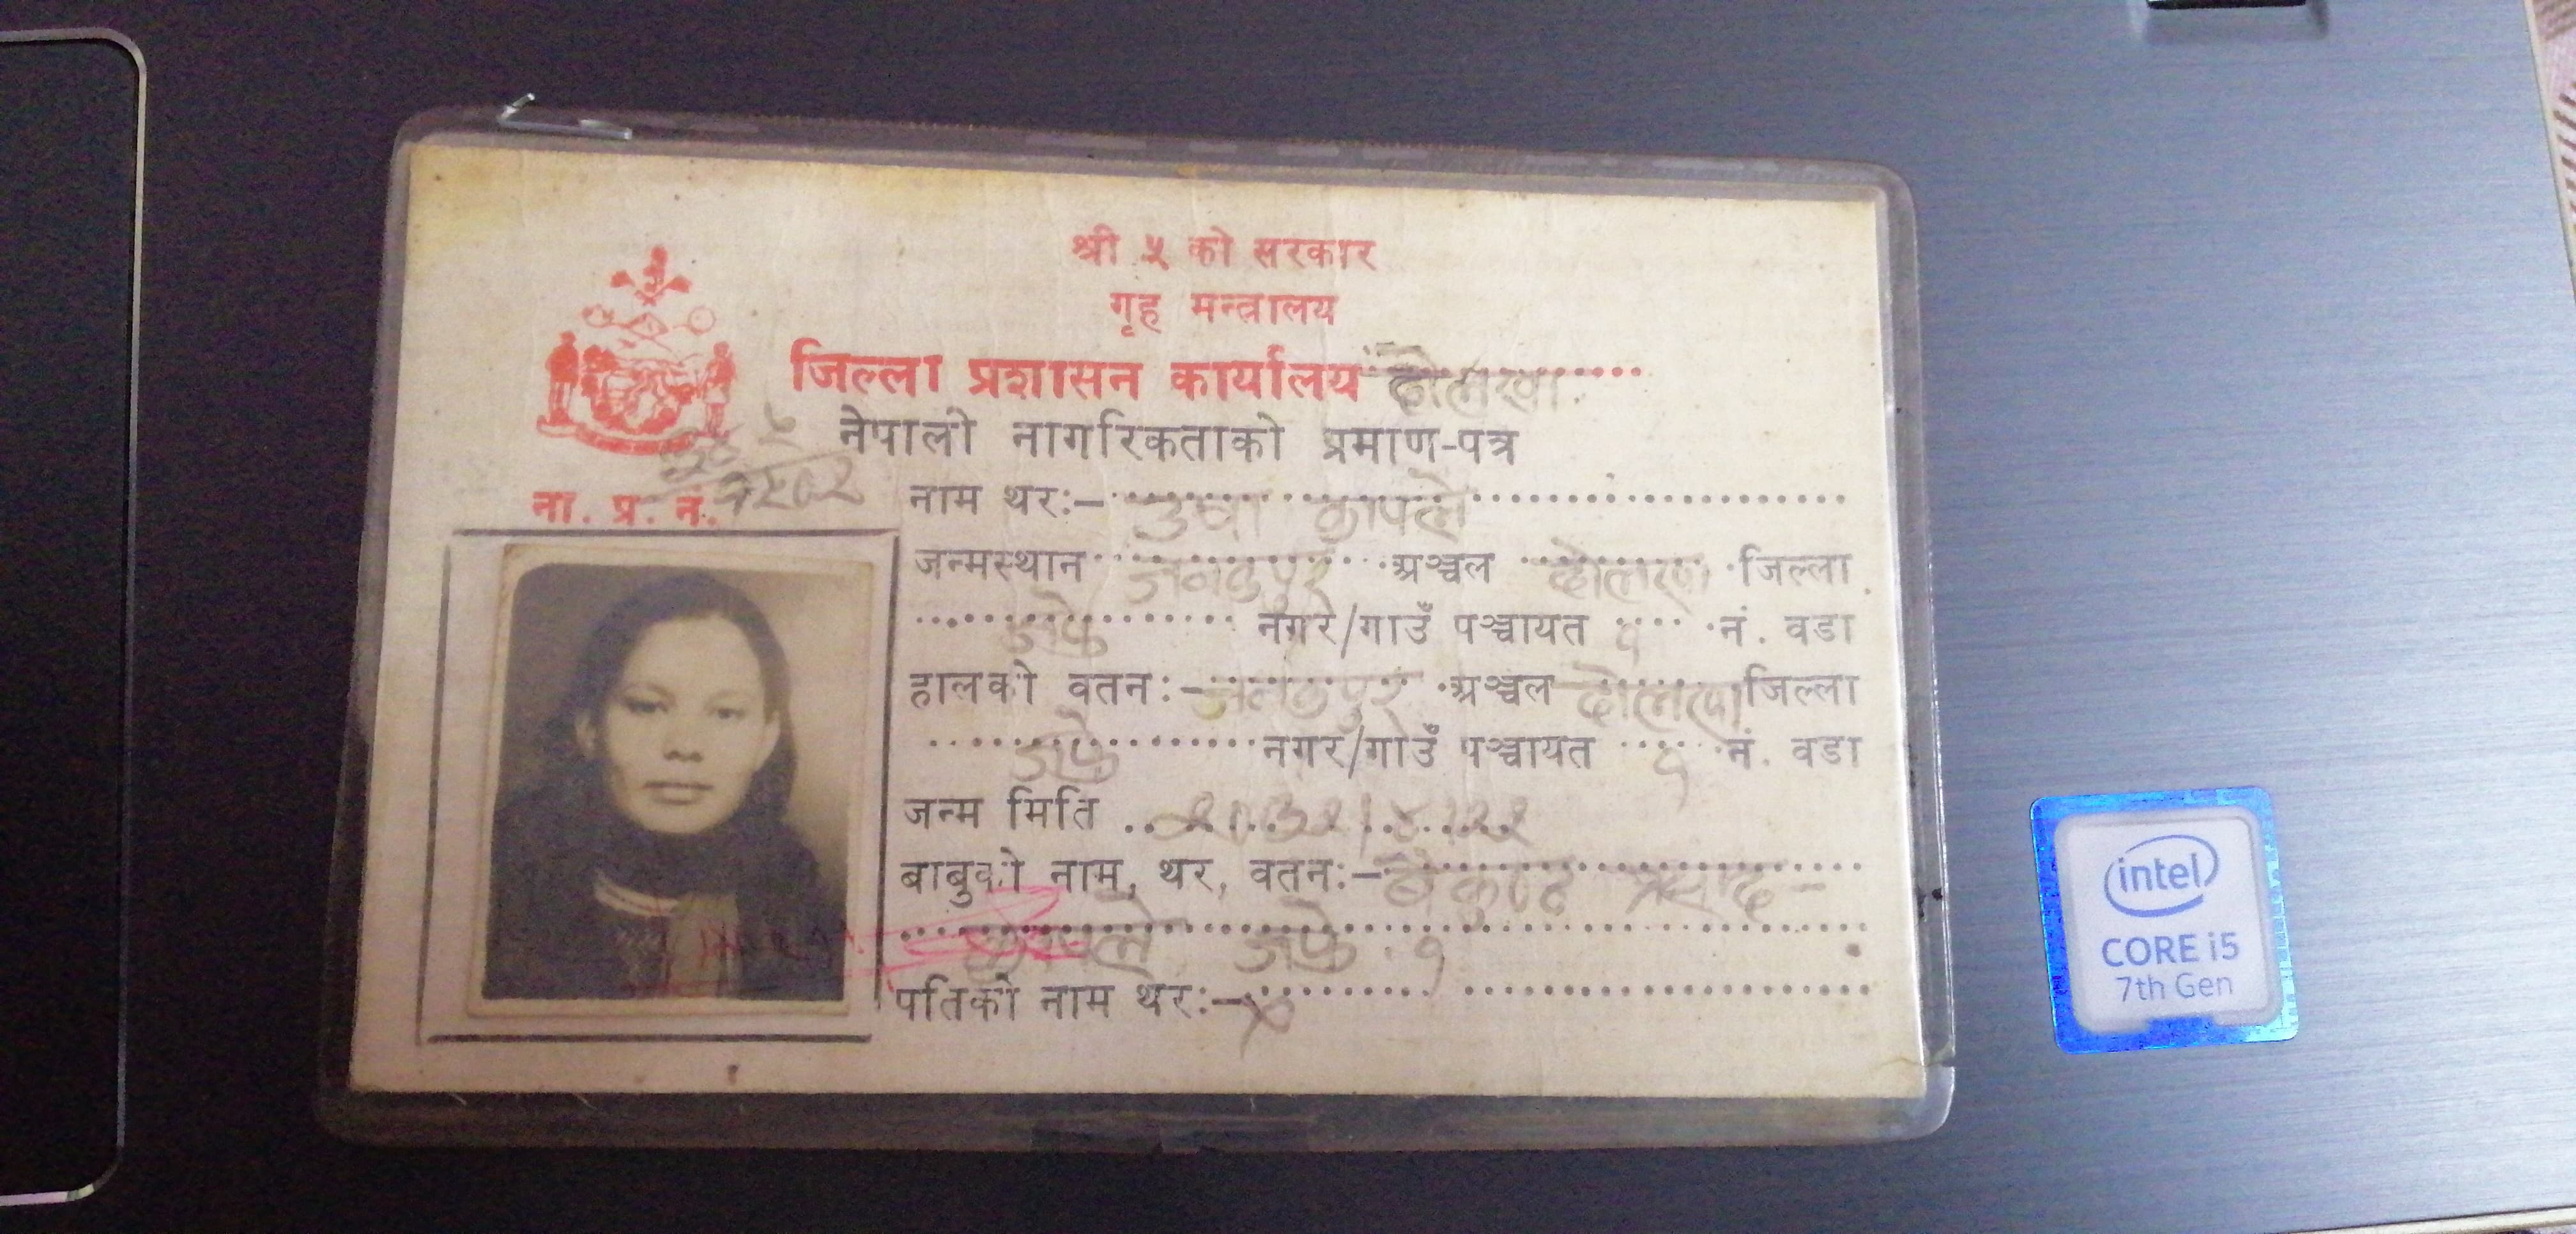 श्री ५ को सरकार
गृह मन्त्रालय
जिल्ला प्रशासन कार्यालय दोलखा
नेपाली नागरिकताको प्रमाण-पत्र
ना. प्र. नं.
नाम थर:- उषा काफ्ले
जन्मस्थान जनकपुर अञ्चल दोलखा जिल्ला
जफे नगर/गाउँ पञ्चायत १ नं. वडा
हालको वतन:- जनकपुर अञ्चल दोलखा जिल्ला
जफे नगर/गाउँ पञ्चायत १ नं. वडा
जन्म मिति
बाबुको नाम, थर, वतन:- बैकुण्ठ प्रसाद-
काफ्ले जफे १
पतिको नाम थर:- ×
intel
CORE i5
7th Gen